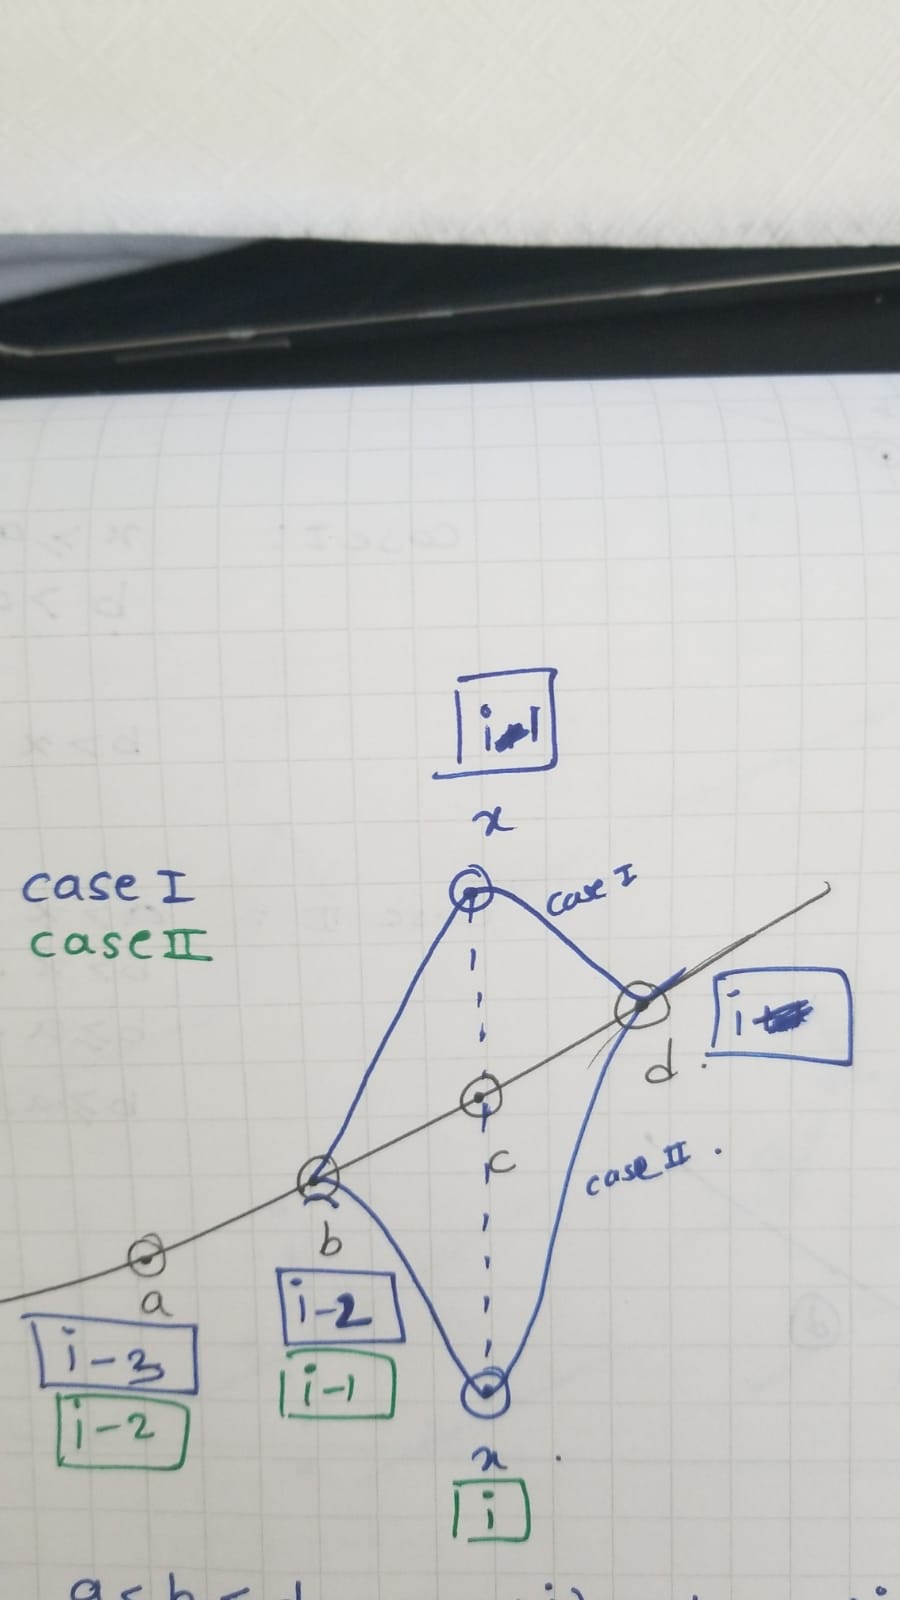 i-1
x
case I
case I
case II
i
d.
c
case II.
b
a
i-2
i-3
i-1
i-2
x.
i
a < b < d